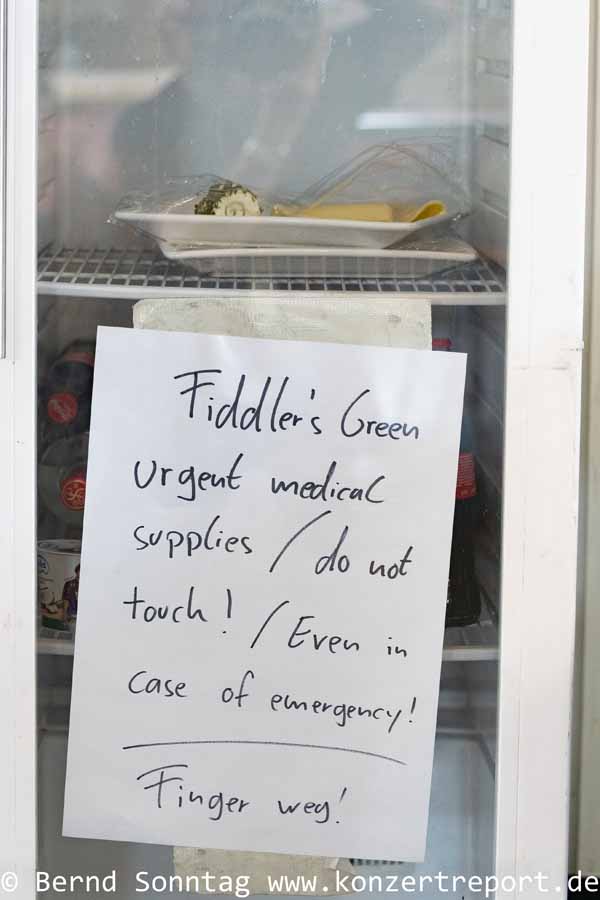 Fiddler's Green
Urgent medical
supplies / do not
touch! / Even in
case of emergency!
Finger weg!
© Bernd Sonntag www.konzertreport.de